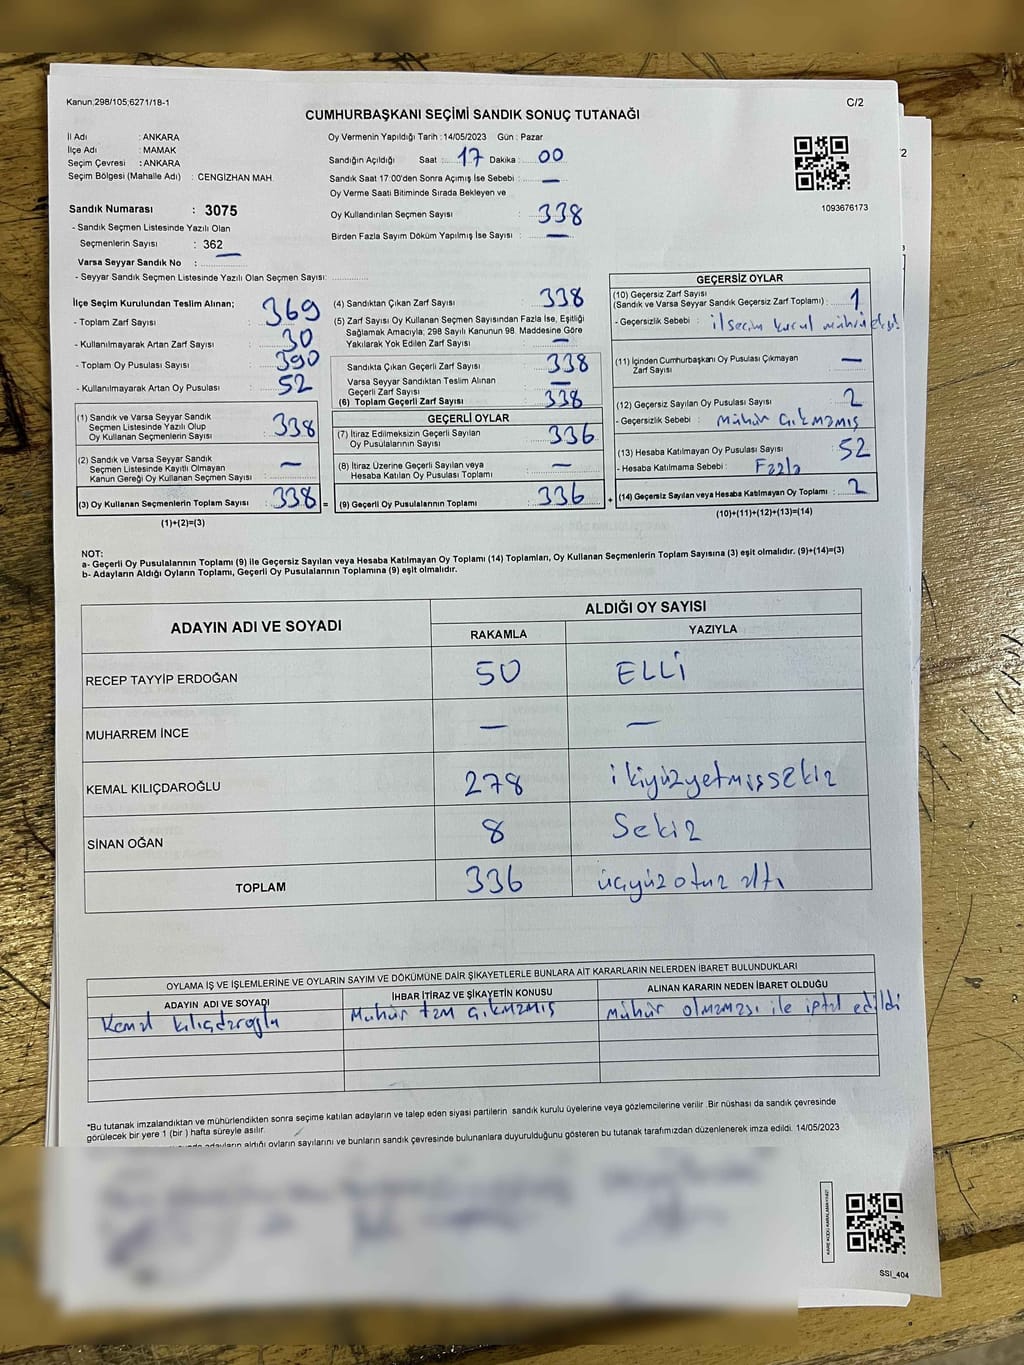 Kanun;298/105;6271/18-1
C/2
CUMHURBAŞKANI SEÇİMİ SANDIK SONUÇ TUTANAĞI
İl Adı : ANKARA
İlçe Adı : MAMAK
Seçim Çevresi : ANKARA
Seçim Bölgesi (Mahalle Adı) : CENGİZHAN MAH.
Sandık Numarası : 3075
- Sandık Seçmen Listesinde Yazılı Olan
Seçmenlerin Sayısı : 362
Varsa Seyyar Sandık No :
- Seyyar Sandık Seçmen Listesinde Yazılı Olan Seçmen Sayısı:
Oy Vermenin Yapıldığı Tarih :14/05/2023 Gün : Pazar
Sandığın Açıldığı Saat : 17 Dakika : 00
Sandık Saat 17:00'den Sonra Açımış İse Sebebi : —
Oy Verme Saati Bitiminde Sırada Bekleyen ve
Oy Kullandırılan Seçmen Sayısı : 338
Birden Fazla Sayım Döküm Yapılmış İse Sayısı : —
1093676173
2
İlçe Seçim Kurulundan Teslim Alınan;
- Toplam Zarf Sayısı : 369
- Kullanılmayarak Artan Zarf Sayısı : 30
- Toplam Oy Pusulası Sayısı : 390
- Kullanılmayarak Artan Oy Pusulası : 52
(1) Sandık ve Varsa Seyyar Sandık
Seçmen Listesinde Yazılı Olup
Oy Kullanan Seçmenlerin Sayısı : 338
(2) Sandık ve Varsa Seyyar Sandık
Seçmen Listesinde Kayıtlı Olmayan
Kanun Gereği Oy Kullanan Seçmen Sayısı : —
(3) Oy Kullanan Seçmenlerin Toplam Sayısı : 338 =
(1)+(2)=(3)
(4) Sandıktan Çıkan Zarf Sayısı : 338
(5) Zarf Sayısı Oy Kullanan Seçmen Sayısından Fazla İse, Eşitliği
Sağlamak Amacıyla; 298 Sayılı Kanunun 98. Maddesine Göre
Yakılarak Yok Edilen Zarf Sayısı : —
Sandıkta Çıkan Geçerli Zarf Sayısı : 338
Varsa Seyyar Sandıktan Teslim Alınan
Geçerli Zarf Sayısı : —
(6) Toplam Geçerli Zarf Sayısı : 338
GEÇERLİ OYLAR
(7) İtiraz Edilmeksizin Geçerli Sayılan
Oy Pusulalarının Sayısı : 336
(8) İtiraz Üzerine Geçerli Sayılan veya
Hesaba Katılan Oy Pusulası Toplamı : —
(9) Geçerli Oy Pusulalarının Toplamı : 336 +
GEÇERSİZ OYLAR
(10) Geçersiz Zarf Sayısı
(Sandık ve Varsa Seyyar Sandık Geçersiz Zarf Toplamı) : 1
- Geçersizlik Sebebi : ilseçim kurul mühür
(11) İçinden Cumhurbaşkanı Oy Pusulası Çıkmayan
Zarf Sayısı : —
(12) Geçersiz Sayılan Oy Pusulası Sayısı : 2
- Geçersizlik Sebebi : mühür çıkmamış
(13) Hesaba Katılmayan Oy Pusulası Sayısı : 52
- Hesaba Katılmama Sebebi : Fazla
(14) Geçersiz Sayılan veya Hesaba Katılmayan Oy Toplamı : 2
(10)+(11)+(12)+(13)=(14)
NOT:
a- Geçerli Oy Pusulalarının Toplamı (9) ile Geçersiz Sayılan veya Hesaba Katılmayan Oy Toplamı (14) Toplamları, Oy Kullanan Seçmenlerin Toplam Sayısına (3) eşit olmalıdır. (9)+(14)=(3)
b- Adayların Aldığı Oyların Toplamı, Geçerli Oy Pusulalarının Toplamına (9) eşit olmalıdır.
ADAYIN ADI VE SOYADI ALDIĞI OY SAYISI
RAKAMLA YAZIYLA
RECEP TAYYİP ERDOĞAN 50 ELLİ
MUHARREM İNCE — —
KEMAL KILIÇDAROĞLU 278 ikiyüzyetmişsekiz
SİNAN OĞAN 8 Sekiz
TOPLAM 336 üçyüz otuz altı
OYLAMA İŞ VE İŞLEMLERİNE VE OYLARIN SAYIM VE DÖKÜMÜNE DAİR ŞİKAYETLERLE BUNLARA AİT KARARLARIN NELERDEN İBARET BULUNDUKLARI
ADAYIN ADI VE SOYADI İHBAR İTİRAZ VE ŞİKAYETİN KONUSU ALINAN KARARIN NEDEN İBARET OLDUĞU
Kemal kılıçdaroğlu Mühür tam çıkmamış mühür olmaması ile iptal edildi
*Bu tutanak imzalandıktan ve mühürlendikten sonra seçime katılan adayların ve talep eden siyasi partilerin sandık kurulu üyelerine veya gözlemcilerine verilir .Bir nüshası da sandık çevresinde
görülecek bir yere 1 (bir ) hafta süreyle asılır.
adayların aldığı oyların sayılarını ve bunların sandık çevresinde bulunanlara duyurulduğunu gösteren bu tutanak tarafımızdan düzenlenerek imza edildi. 14/05/2023
SSİ_404